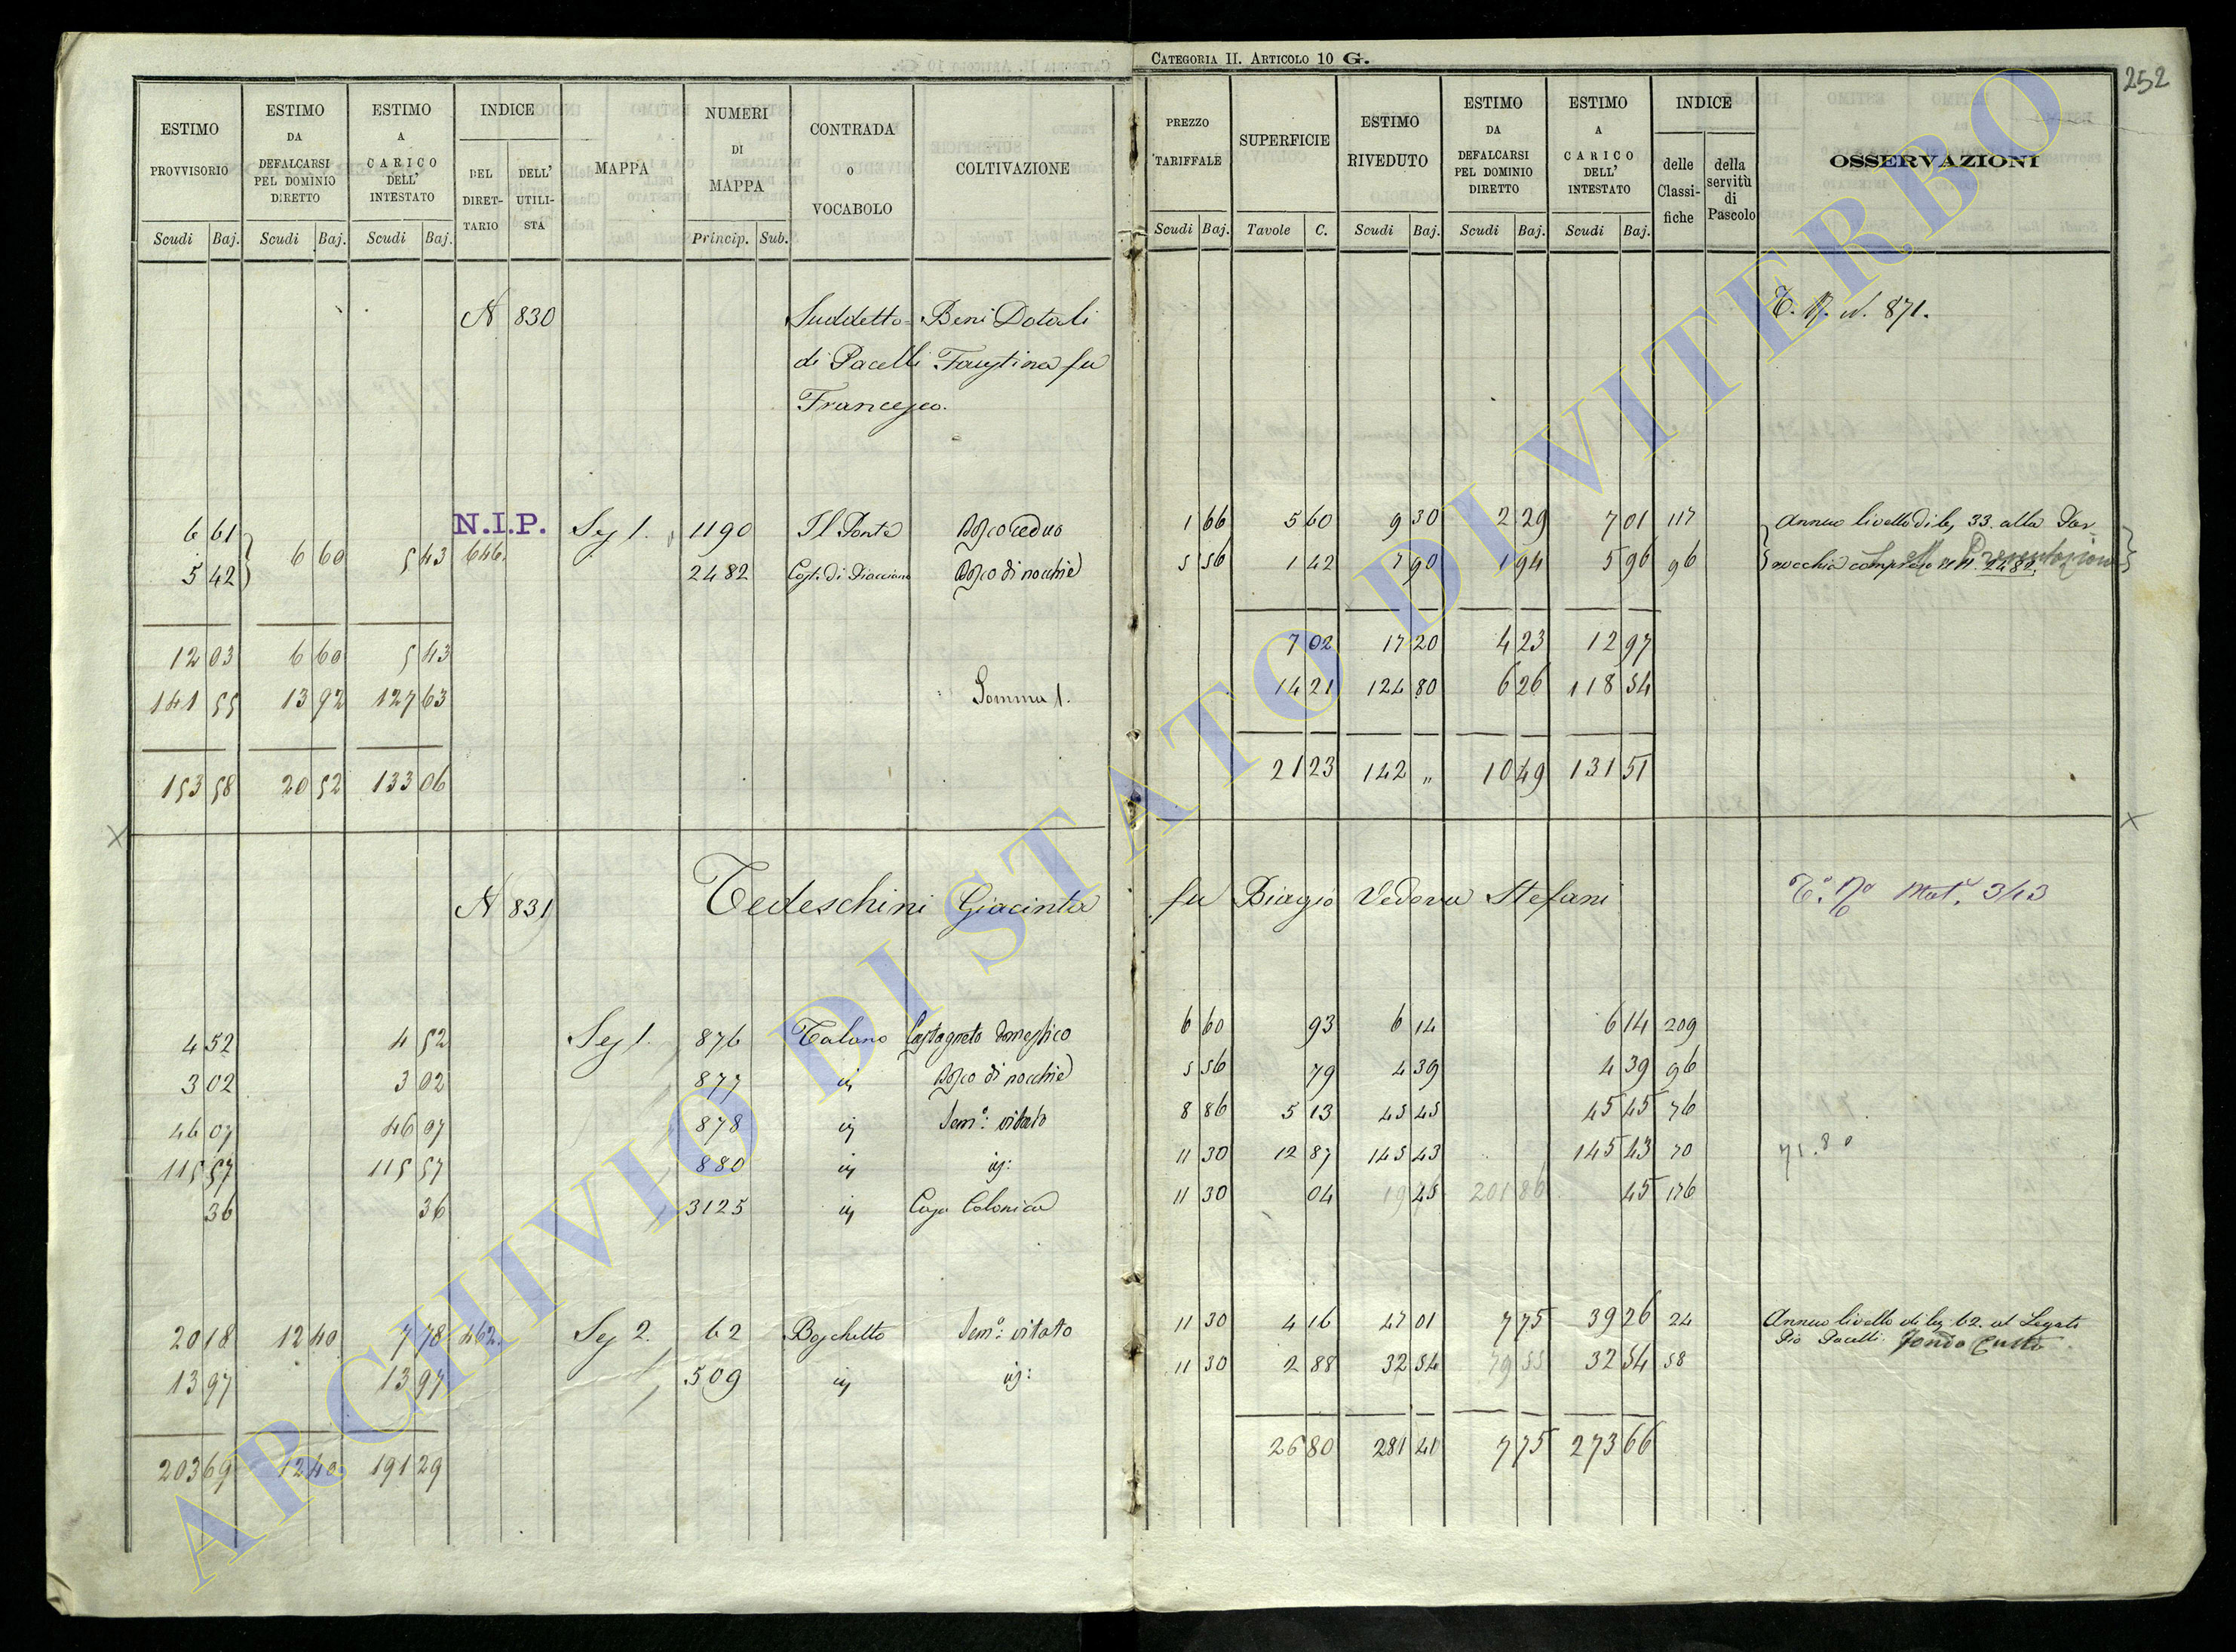 CATEGORIA II. ARTICOLO 10 G.
252
ESTIMO PROVVISORIO Scudi Baj. ESTIMO DA DEFALCARSI PEL DOMINIO DIRETTO Scudi Baj. ESTIMO A CARICO DELL' INTESTATO Scudi Baj. INDICE DEL DIRETTARIO DELL' UTILISTA MAPPA NUMERI DI MAPPA Princip. Sub. CONTRADA O VOCABOLO COLTIVAZIONE
PREZZO TARIFFALE Scudi Baj. SUPERFICIE Tavole C. ESTIMO RIVEDUTO Scudi Baj. ESTIMO DA DEFALCARSI PEL DOMINIO DIRETTO Scudi Baj. ESTIMO A CARICO DELL' INTESTATO Scudi Baj. INDICE delle Classifiche della servitù di Pascolo OSSERVAZIONI
N 830 Suddetto = Beni Dotali
di Pacelli Faustina fu
Francesco.
871.
N.I.P.
6 61 Sez 1. 1190 Il Ponte Bosco ceduo 1 66 5 60 9 30 2 29 7 01 117 Annuo livello di 33. alla Par
6 60 5 43 646.
5 42 2482 Bosco di nocchie 5 56 1 42 7 90 1 94 5 96 96 rocchia 2482. Presentazione
12 03 6 60 5 43 7 02 17 20 4 23 12 97
141 55 13 92 127 63 Somma 1. 14 21 124 80 6 26 118 54
153 58 20 52 133 06 21 23 142 „ 10 49 131 51
N 831 Tedeschini Giacinta fu Biagio Vedova Stefani Mat. 343
4 52 4 52 Sez 1. 876 Talano Castagneto domestico 6 60 93 6 14 6 14 209
3 02 3 02 877 id Bosco di nocchie 5 56 79 4 39 4 39 96
46 07 46 07 878 id Semo: vitato 8 86 5 13 45 45 45 45 76
115 57 115 57 880 id id: 11 30 12 87 145 43 145 43 70 71.80
36 36 3125 id Casa Colonica 11 30 04 45 201 86 45 176
20 18 12 40 7 78 462. Sez 2. 62 Boschetto Semo: vitato 11 30 4 16 47 01 7 75 39 26 24 Annuo livello di 62. al Legato
Pio Pacelli. Fondo Culto
13 97 13 97 509 id id: 11 30 2 88 32 54 79 55 32 54 58
203 69 12 40 191 29 26 80 281 41 7 75 273 66
ARCHIVIO DI STATO DI VITERBO